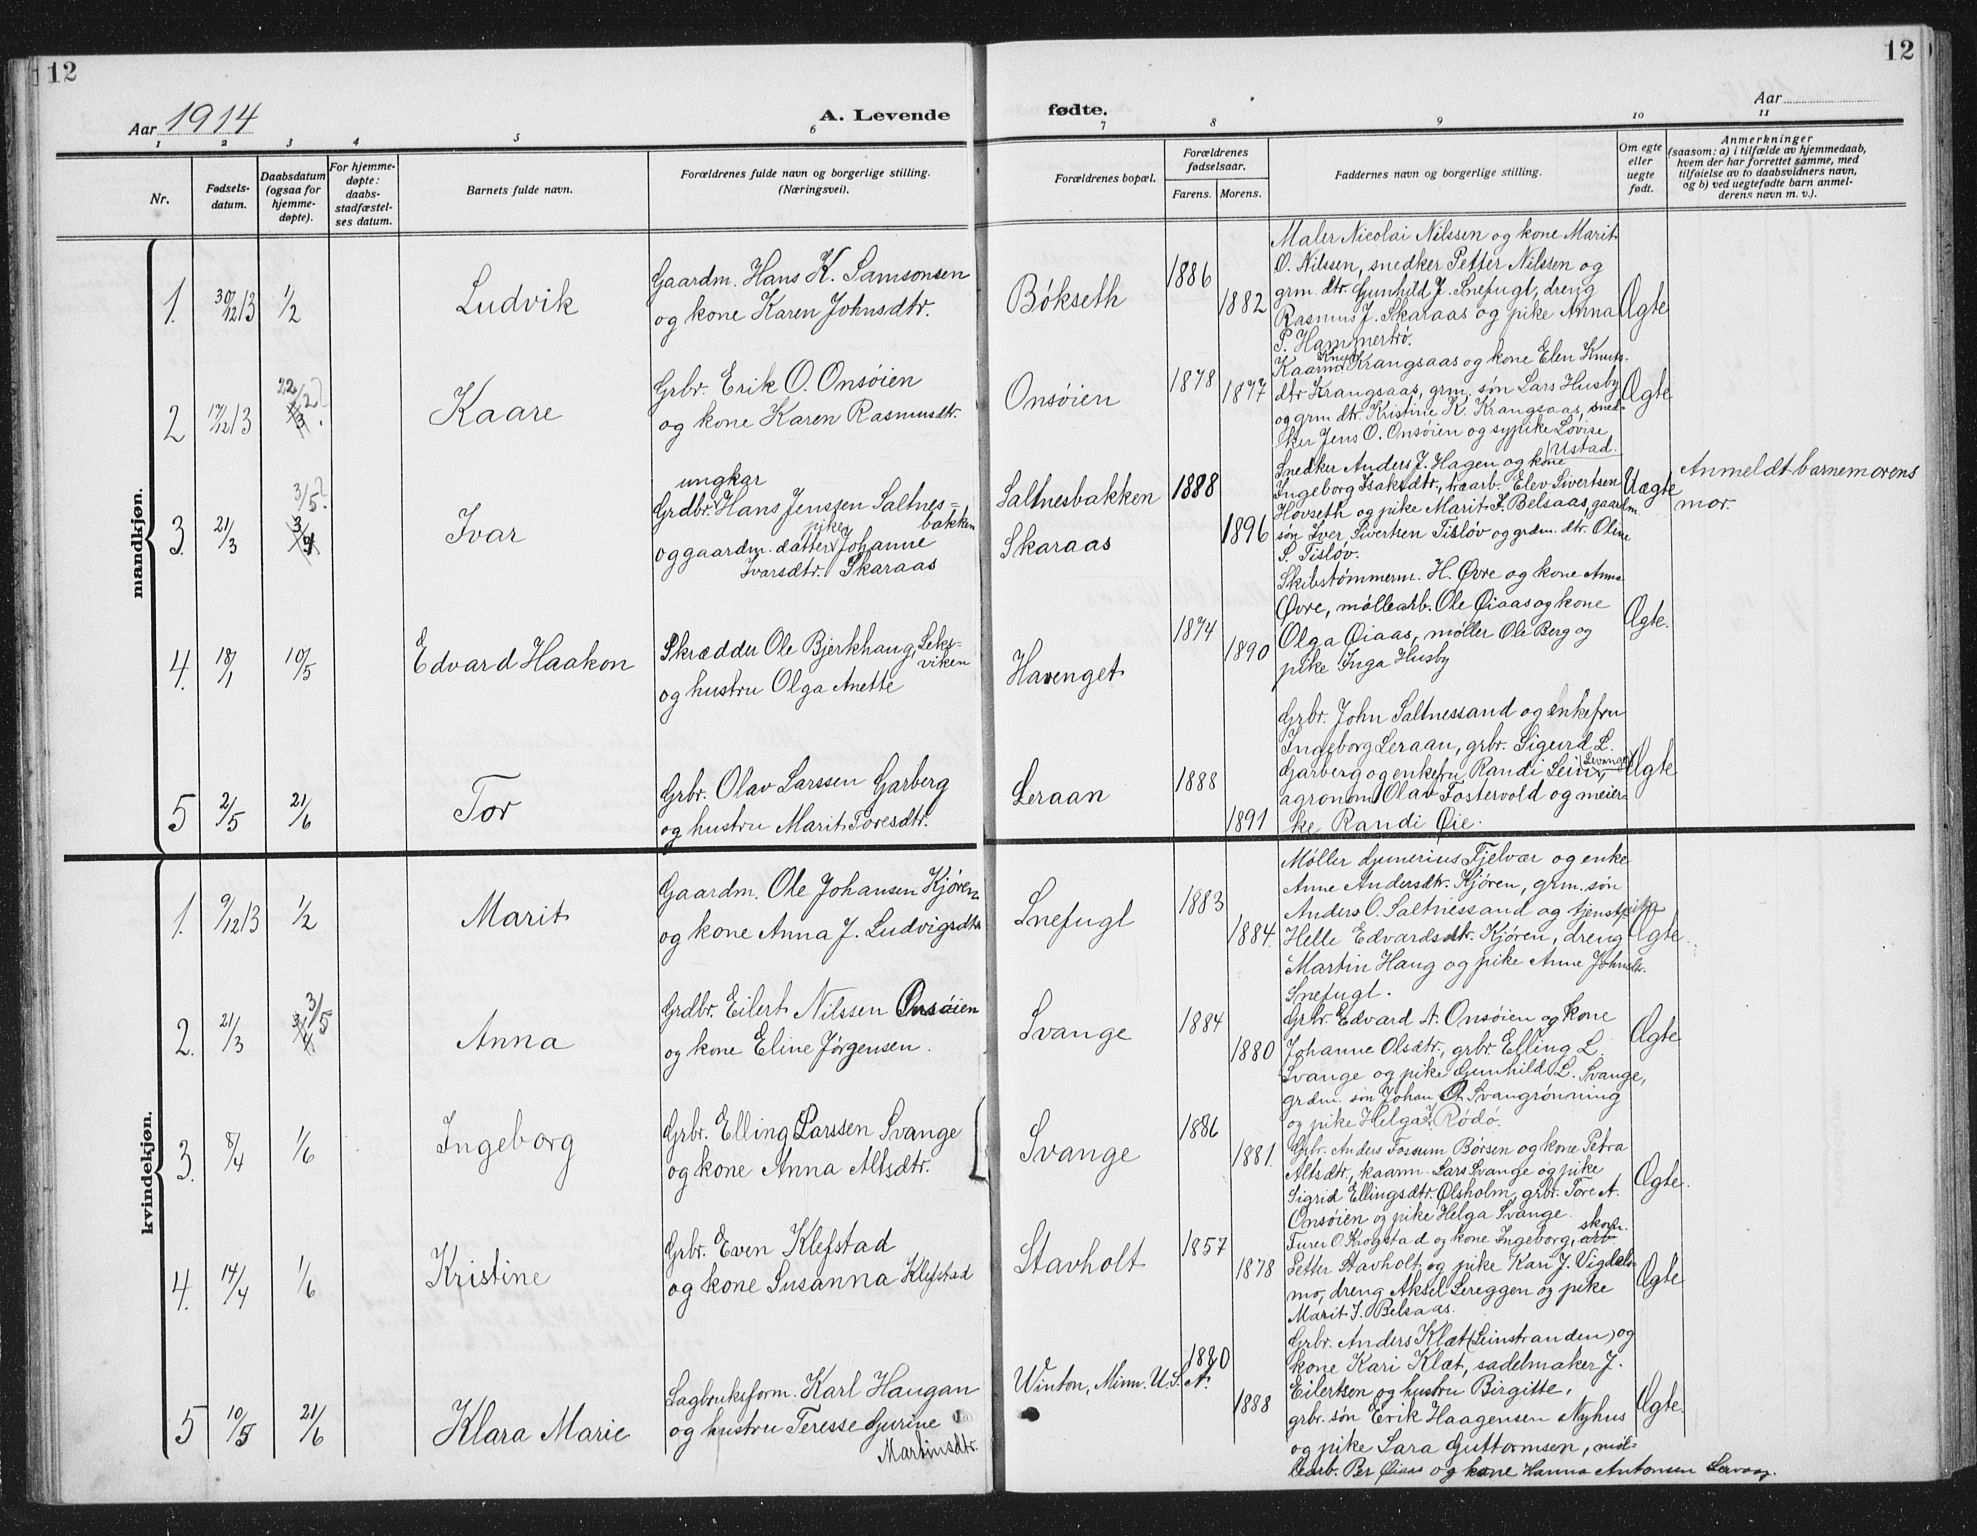 12
12
Aar 1914
A. Levende
fødte.
Aar
1 2 3 4 5 6 7 8 9 10 11
Nr.
Fødsels-
datum.
Daabsdatum
(ogsaa for
hjemme-
døpte).
For hjemme-
døpte:
daabs-
stadfæstel-
ses datum.
Barnets fulde navn.
Forældrenes fulde navn og borgerlige stilling.
(Næringsvei).
Forældrenes bopæl.
Forældrenes
fødselsaar.
Farens. Morens.
Faddernes navn og borgerlige stilling.
Om egte
eller
uegte
født.
Anmerkninger
(saasom: a) i tilfælde av hjemmedaab,
hvem der har forrettet samme, med
tilføielse av to daabsvidners navn,
og b) ved uegtefødte barn anmel-
derens navn m. v.).
mandkjøn.
1. 30/12 13 1/2
Ludvik
Gaardm. Hans K. Samsonsen
og kone Karen Johnsdtr.
Bökseth
1886
1882
Maler Nicolai Nilssen og kone Marit
O. Nilssen, snedker Petter Nilssen og
grm. dtr. Gunhild J. Snefugl, dreng
Rasmus J. Skaraas og pike Anna
P. Hammertrö.
Ægte
2 17/12 13 22/2 1/3 ?
Kaare
Grbr. Erik O. Onsöien
og kone Karen Rasmusdtr.
Onsöien
1878
1877
Kaarm. Knut Krangsaas og kone Elen Knuts-
dtr Krangsaas, grm. søn Lars Husby
og grm. dtr. Kristine K. Krangsaas, sned-
ker Jens O. Onsöien og sypike Lovise
Ustad.
Ægte
3. 21/3 3/5? 3/4
Ivar
ungkar
Grdbr. Hans Jenssen Saltnes-
bakken
og gaardm. datter pike Johanne
Ivarsdtr. Skaraas
Saltnesbakken
Skaraas
1888
1896
Snedker Anders J. Hagen og kone
Ingeborg Isaksdtr., traarb. Elev Sivertsen
Hovseth og pike Marit J. Belsaas, gaardm.
søn Iver Sivertsen Tislöv og grdm. dtr. Oline
S. Tislöv.
Uægte
Anmeldt barnemorens
mor.
4. 18/1 10/5
Edvard Haakon
Skrædder Ole Bjerkhaug, Leks-
viken
og hustru Olga Anette
Havenget
1874
1890
Skibstømmerm. H. Øvre og kone Anna
Øvre, møllearb. Ole Øiaas og kone
Olga Øiaas, møller Ole Berg og
pike Inga Husby
Ægte.
5 2/5 21/6
Tor
Grbr. Olav Larssen Garberg
og hustru Marit Toresdtr.
Leraan
1888
1891
Grbr. John Saltnessand og enkefru
Ingeborg Leraan, grbr. Sigurd L.
Garberg og enkefru Randi Lein, Levanger
agronom Olav Fostervold og meier-
ske Randi Øie.
Ægte
kvindekjøn.
1. 9/12 13 1/2
Marit
Gaardm. Ole Johansen Kjören
og kone Anna J. Ludvigsdtr
Snefugl
1883
1884.
Møller Gunerius Fjelvær og enke
Anne Andersdtr. Kjören, grm. søn
Anders O. Saltnessand og tjenstpike
Helle Edvardsdtr. Kjören, dreng
Martin Haug og pike Anne Johnsdtr.
Snefugl.
Ægte.
2. 21/3 3/5 3/4
Anna
Grdbr. Eilert Nilssen Onsöien
og kone Eline Jörgensen.
Svange
1884
1880
Grbr. Edvard A. Onsöien og kone
Johanne Olsdtr., grbr. Elling L.
Svange og pike Gunhild L. Svange,
grdm. søn Johan O. Svangrönning
og pike Helga J. Rödö.
Ægte
3. 8/4 1/6
Ingeborg
Grbr. Elling Larssen Svange
og kone Anna Altsdtr.
Svange
1886
1881.
Grbr. Anders Fossum Börsen og kone Petra
Altsdtr., kaarm. Lars Svange og pike
Sigrid Ellingsdtr. Ølsholm, grbr. Tore A.
Onsöien og pike Helga Svange.
Ægte.
4. 14/4 1/6
Kristine
Grbr. Even Klefstad
og kone Susanna Klefstad
Stavholt
1857
1878
Furer O. Krogstad og kone Ingeborg, skom. arb.
Petter Stavholt og pike Kari J. Vigdals-
mo, dreng Aksel Lereggen og pike
Marit J. Belsaas.
Ægte
5 10/5 21/6
Klara Marie
Sagbruksform. Karl Haugan
og hustru Teresse Gurine
Martinsdtr.
Winton, Minn. U.S.A.
1880
1888
Grbr. Anders Klæt (Leinstranden) og
kone Kari Klæt, sadelmaker J.
Eilertsen og hustru Birgitte,
grbr. søn Erik Haagensen Nyhus
og pike Sara Guttormsen, møl-
learb. Per Øiaas og kone Hanna Antonsen
Ægte.